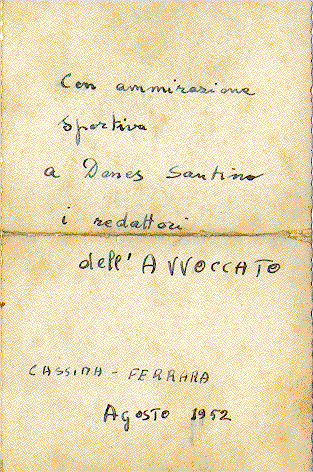 Con ammirazione
sportiva
a Danes Santino
i redattori
dell'AVVOCCATO
CASSINA - FERRARA
AGOSTO 1952